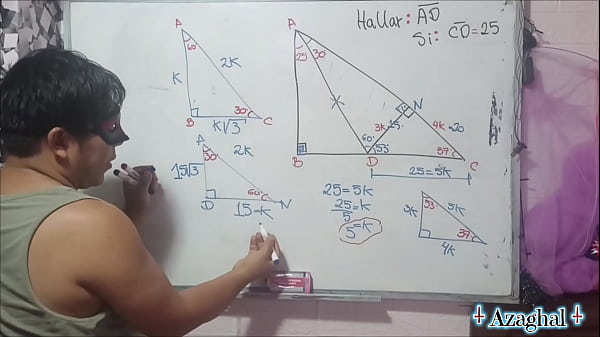 Hallar: AD
Si: CD=25
A
60
K
2K
30
B
K√3
C
A
30
2K
15√3
60
D
15=K
N
A
23
30
X
N
3K=15
4K=20
60
53
37
B
D
C
25=5K
25=5K
25/5=K
5=K
53
3K
5K
37
4K
Azaghal